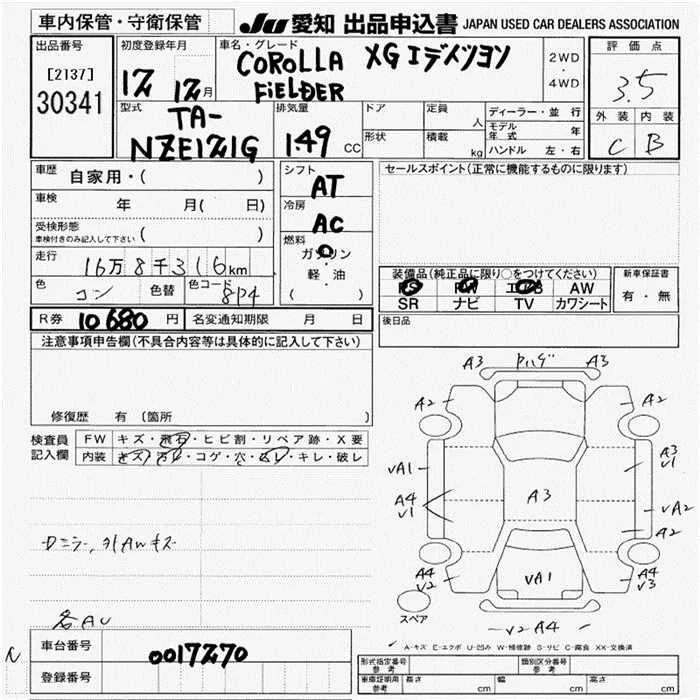 車内保管・守衛保管
JU 愛知 出品申込書 JAPAN USED CAR DEALERS ASSOCIATION
出品番号
[2137]
30341
初度登録年月
12 12月
車名・グレード
COROLLA FIELDER
XG
2WD
・
4WD
評価点
3.5
外装 内装
C B
型式
TA-
NZE121G
排気量
149 CC
ドア
形状
定員
人
積載
kg
ディーラー・並行
モデル年式 年
ハンドル 左・右
車歴
自家用・( )
車検
年 月( 日)
受検形態
車検付きのみ記入して下さい ( )
走行
16万8千316km
色
コン
色替
色コード
8P4
シフト
AT
冷房
AC
燃料
ガソリン
軽・油
( )
セールスポイント(正常に機能するものに限ります)
装備品(純正品に限り○をつけてください)
PS PW エアB AW
SR ナビ TV カワシート
新車保証書
有・無
後日品
R券 10680 円
名変通知期限 月 日
注意事項申告欄(不具合内容等は具体的に記入して下さい)
修復歴 有 (箇所 )
検査員記入欄
FW キズ・飛石・ヒビ割・リペア跡・X要
内装 キズ・汚レ・コゲ・穴・ムレ・キレ・破レ
各AU
A3
A3
A2
A2
VA1
A3
V1
A4
V1
A3
VA2
A2
A4
V2
VA1
A4
V3
スペア
V2 A4
A-キズ E-エクボ U-凹み W-補修跡 S-サビ C-腐食 XX-交換済
車台番号
0017270
登録番号
形式指定番号 参考
類別区分番号 参考
車庫証明用 参考
長さ cm
幅 cm
高さ cm